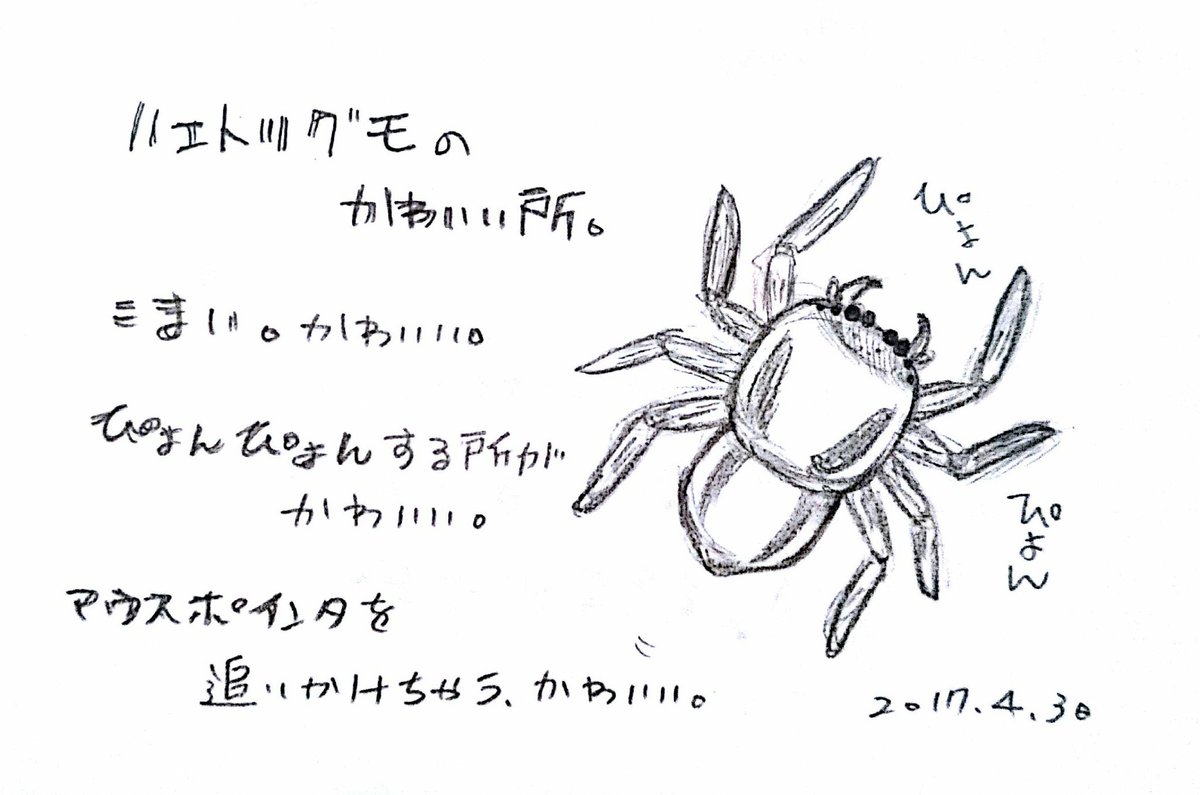 ハエトリグモの
かわいい所。
こまい。かわいい。
ぴょんぴょんする所が
かわいい。
マウスポインタを
追いかけちゃう、かわいい。
ぴょん
ぴょん
2017.4.30